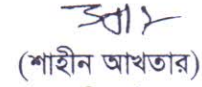 (শাহীন আখতার)